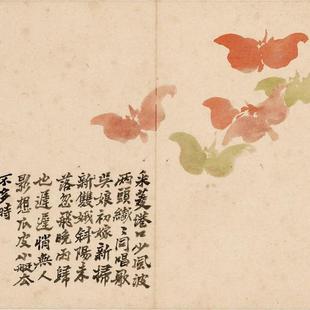 采菱港口少風波
兩頭纖纖同唱歌
吳娘初嫁新掃
新雙娥斜陽未
落忽飛晚雨歸
也遲遲悄無人
影想瓜皮小艇去
不多時